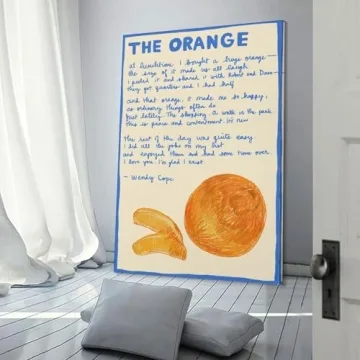 THE ORANGE
at lunchtime I bought a huge orange—
the size of it made us all laugh
I peeled it and shared it with Robert and Dave—
they got quarters and I had half
and that orange, it made me so happy,
as ordinary things often do
just lately. The shopping. A walk in the park
this is peace and contentment. it's new
The rest of the day was quite easy.
I did all the jobs on my list
and enjoyed them and had some time over
I love you. I'm glad I exist.
- Wendy Cope